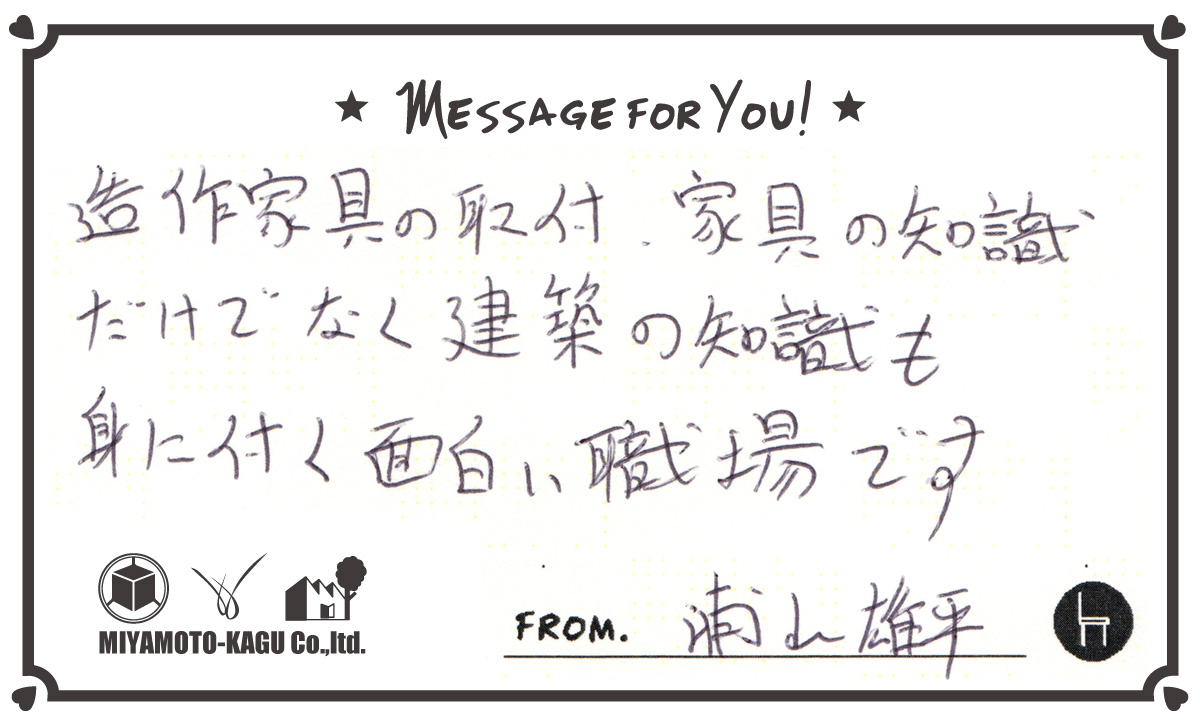 ★ MESSAGE FOR YOU! ★
造作家具の取付、家具の知識
だけでなく建築の知識も
身に付く面白い職場です
MIYAMOTO-KAGU Co.,ltd.
FROM. 浦山雄平